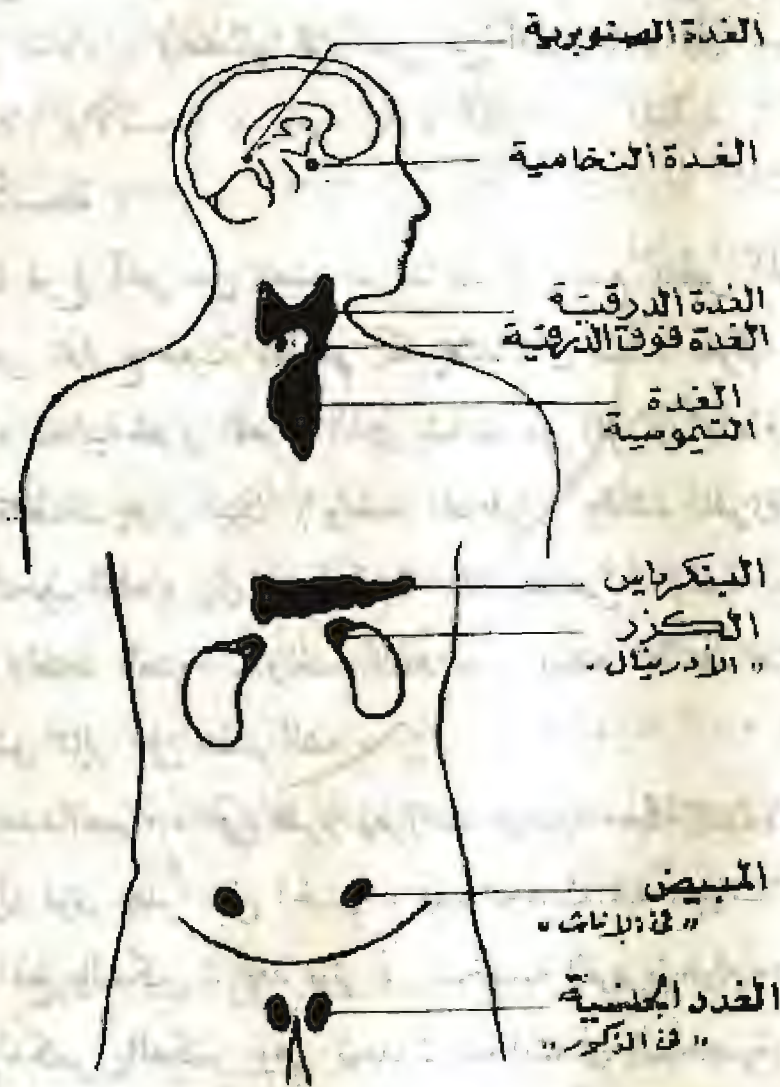 الغدة الصنوبرية
الغدة النخامية
الغدة الدرقية
الغدة فوق الدرقية
الغدة
التيموسية
البنكرياس
الكزر
" الأدرينال "
المبيض
" في الإناث "
الغدد الجنسية
" في الذكور "